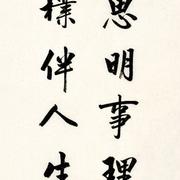 思明事理
樸伴人生